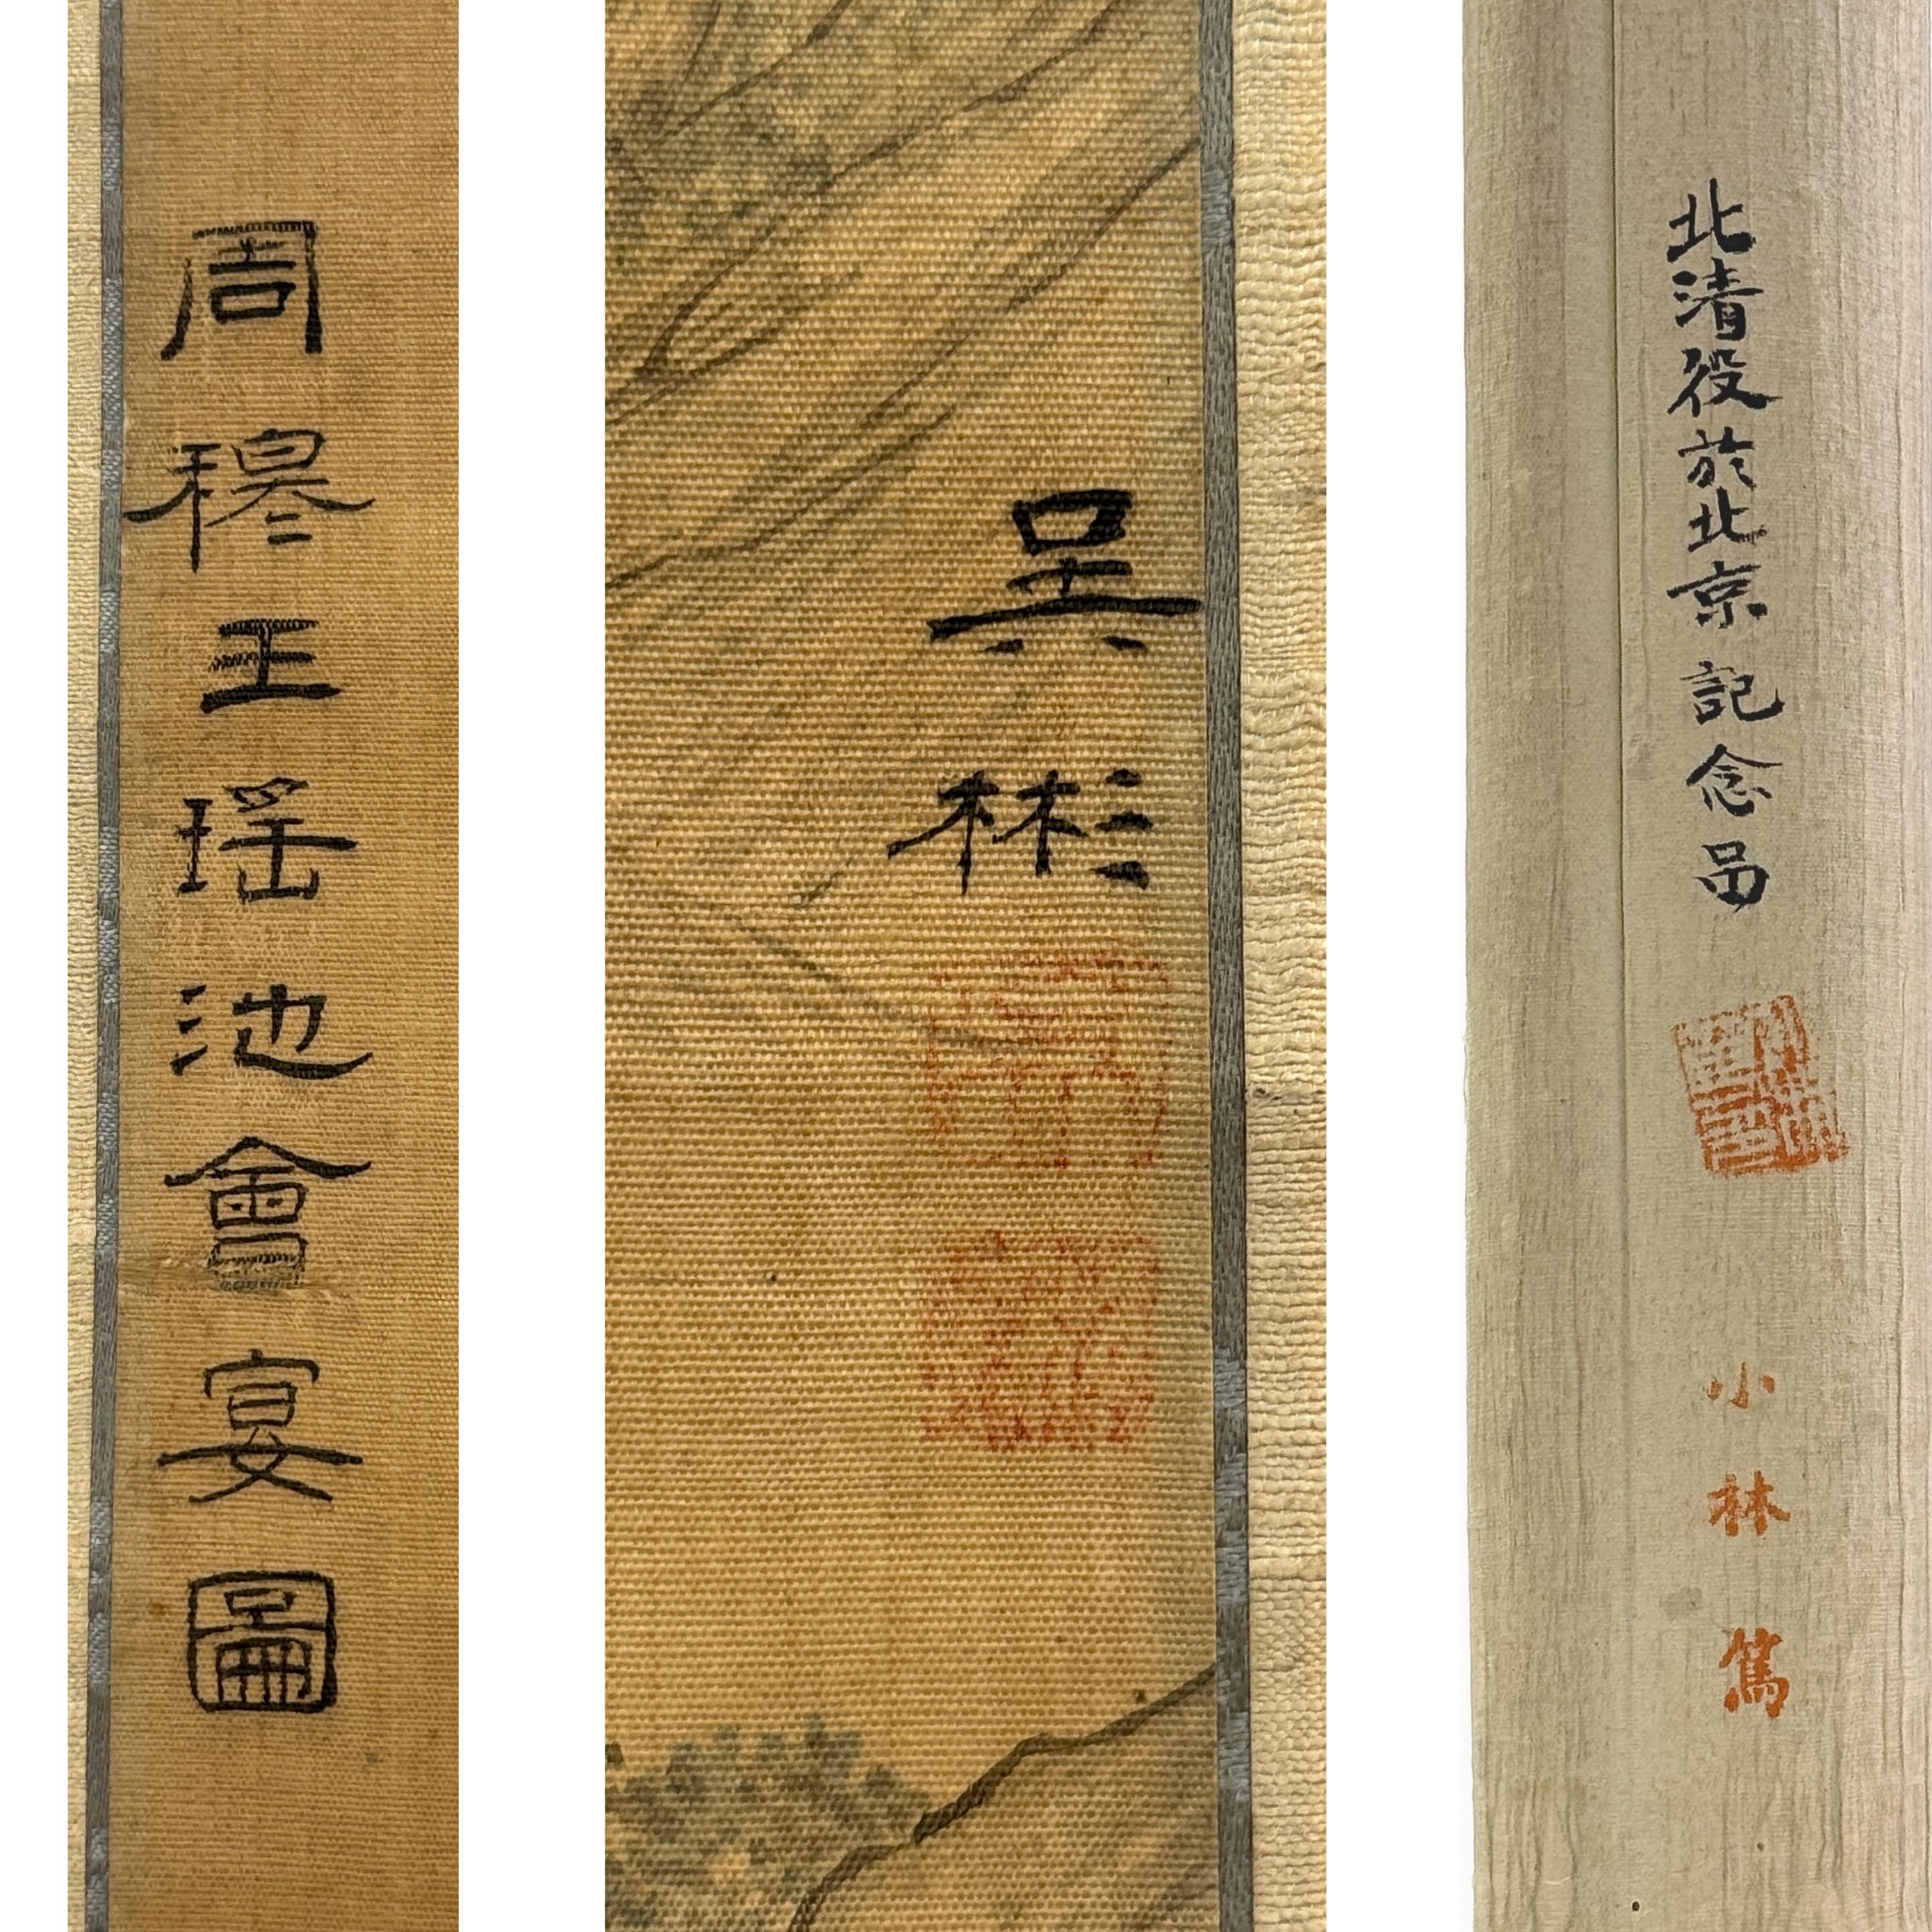 周穆王瑤池會宴圖
吳彬
北清役於北京記念品
小林篤